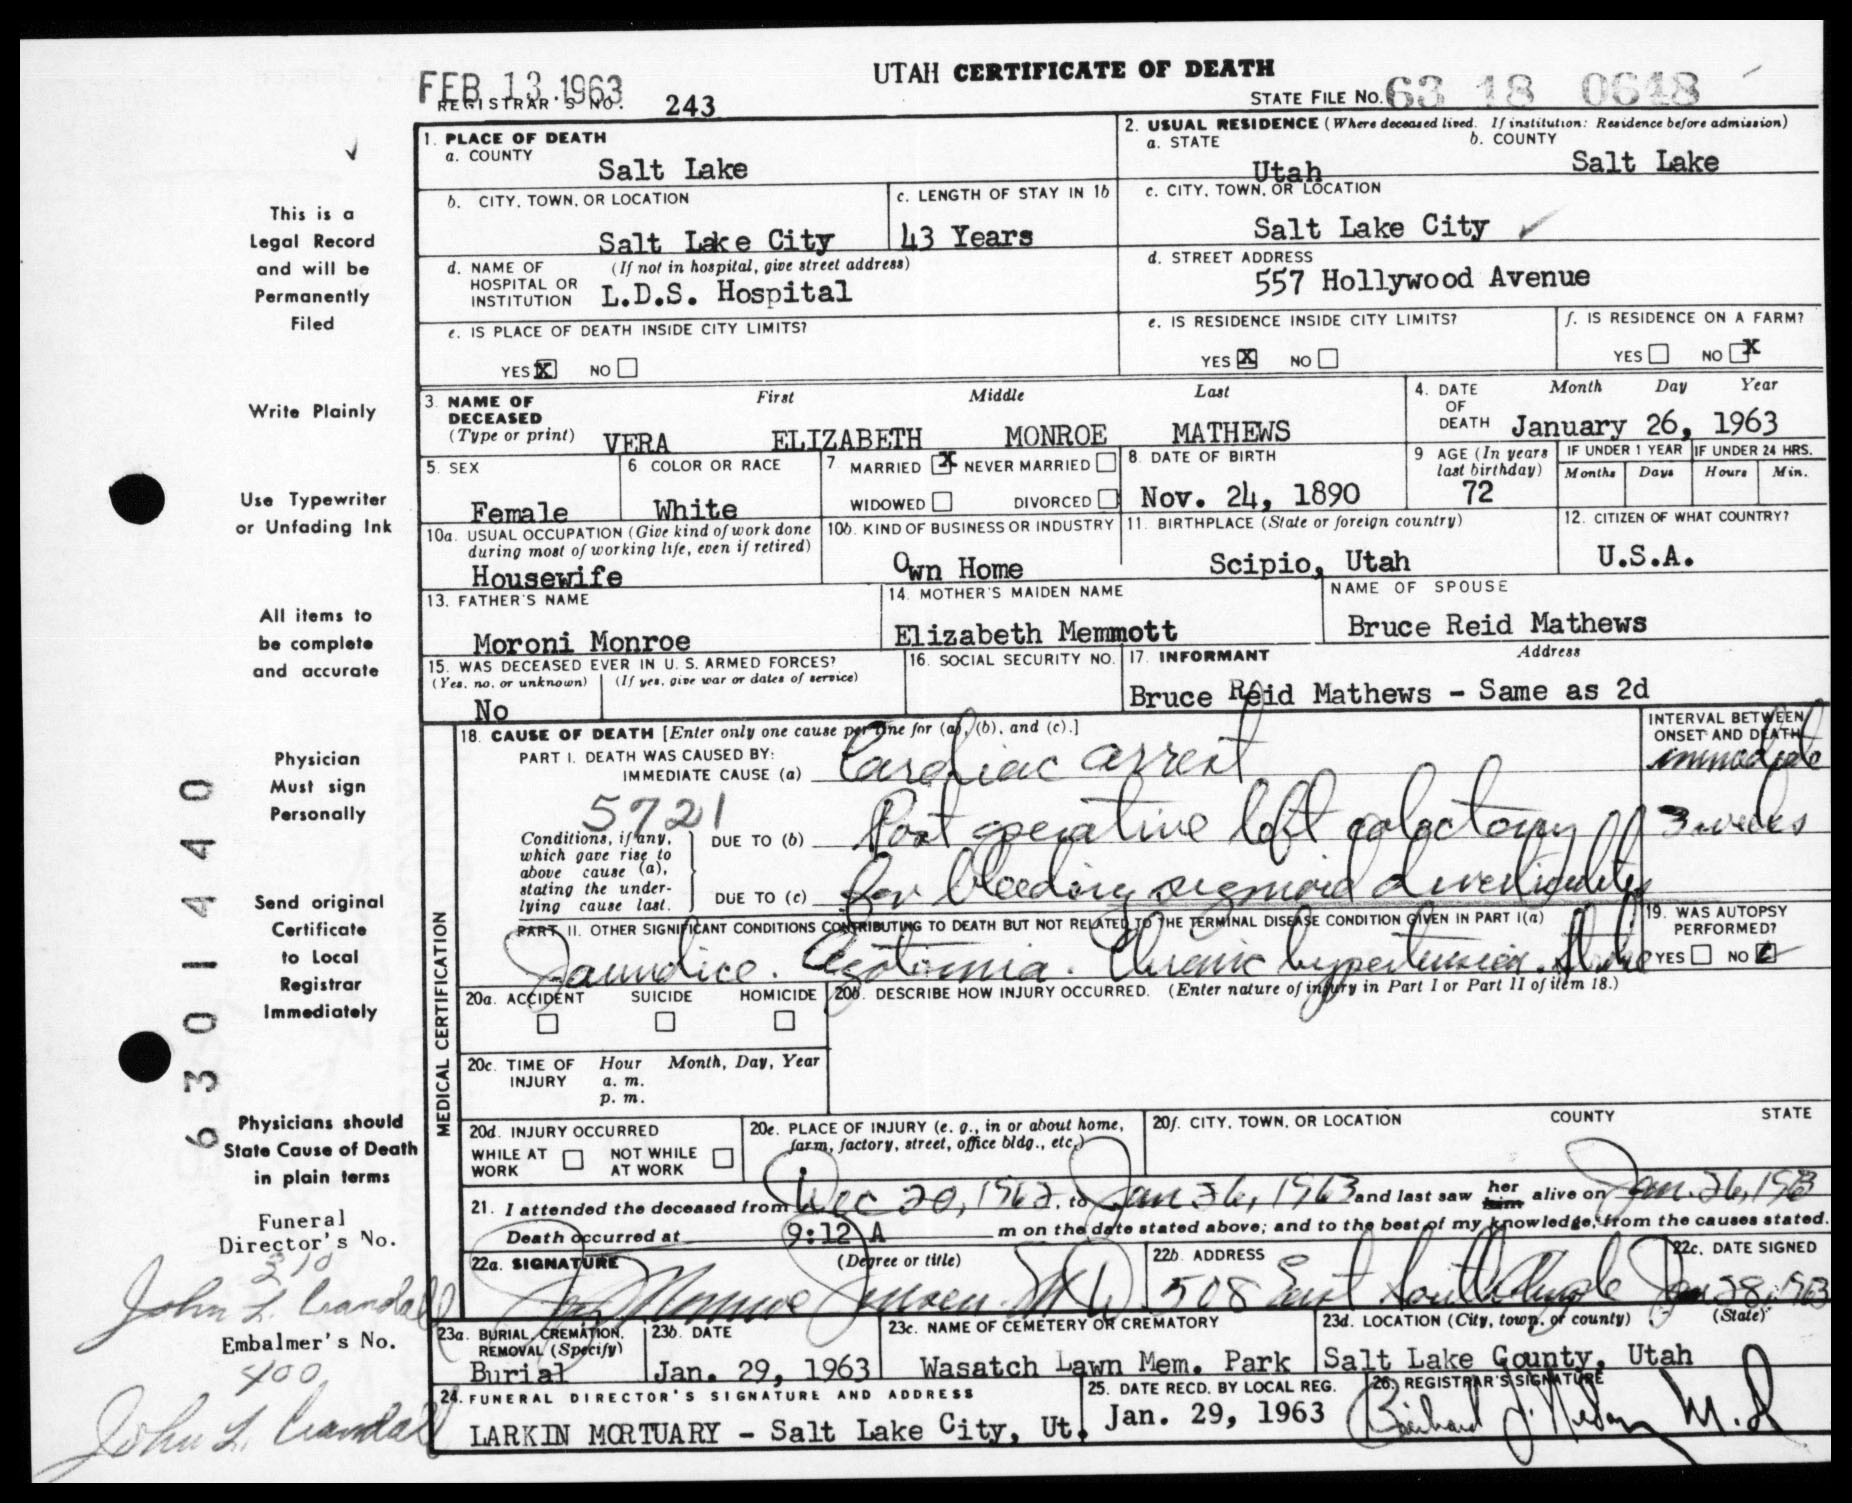 UTAH CERTIFICATE OF DEATH
FEB 13 1963
REGISTRAR'S NO. 243
STATE FILE NO. 63 18 0648
1. PLACE OF DEATH
a. COUNTY
Salt Lake
2. USUAL RESIDENCE (Where deceased lived. If institution: Residence before admission)
a. STATE
Utah
b. COUNTY
Salt Lake
b. CITY, TOWN, OR LOCATION
Salt Lake City
c. LENGTH OF STAY IN 1b
43 Years
c. CITY, TOWN, OR LOCATION
Salt Lake City
d. NAME OF HOSPITAL OR INSTITUTION
(If not in hospital, give street address)
L.D.S. Hospital
d. STREET ADDRESS
557 Hollywood Avenue
e. IS PLACE OF DEATH INSIDE CITY LIMITS?
YES X NO
e. IS RESIDENCE INSIDE CITY LIMITS?
YES X NO
f. IS RESIDENCE ON A FARM?
YES NO X
3. NAME OF DECEASED
(Type or print)
First Middle Last
VERA ELIZABETH MONROE MATHEWS
4. DATE OF DEATH
Month Day Year
January 26, 1963
5. SEX
Female
6 COLOR OR RACE
White
7. MARRIED X NEVER MARRIED
WIDOWED DIVORCED
8. DATE OF BIRTH
Nov. 24, 1890
9 AGE (In years last birthday)
72
IF UNDER 1 YEAR
Months Days
IF UNDER 24 HRS.
Hours Min.
10a. USUAL OCCUPATION (Give kind of work done during most of working life, even if retired)
Housewife
10b. KIND OF BUSINESS OR INDUSTRY
Own Home
11. BIRTHPLACE (State or foreign country)
Scipio, Utah
12. CITIZEN OF WHAT COUNTRY?
U.S.A.
13. FATHER'S NAME
Moroni Monroe
14. MOTHER'S MAIDEN NAME
Elizabeth Memmott
NAME OF SPOUSE
Bruce Reid Mathews
15. WAS DECEASED EVER IN U. S. ARMED FORCES?
(Yes, no, or unknown) (If yes, give war or dates of service)
No
16. SOCIAL SECURITY NO.
17. INFORMANT Address
Bruce Reid Mathews - Same as 2d
MEDICAL CERTIFICATION
18. CAUSE OF DEATH [Enter only one cause per line for (a), (b), and (c).]
INTERVAL BETWEEN ONSET AND DEATH
PART I. DEATH WAS CAUSED BY:
IMMEDIATE CAUSE (a) Cardiac arrest immediate
5721
Conditions, if any, which gave rise to above cause (a), stating the underlying cause last.
DUE TO (b) Post operative left colectomy 3 weeks
DUE TO (c) for bleeding sigmoid diverticulitis
PART II. OTHER SIGNIFICANT CONDITIONS CONTRIBUTING TO DEATH BUT NOT RELATED TO THE TERMINAL DISEASE CONDITION GIVEN IN PART I(a)
Jaundice. Azotemia. Chronic hypertension. Stroke
19. WAS AUTOPSY PERFORMED?
YES NO
20a. ACCIDENT SUICIDE HOMICIDE
20b. DESCRIBE HOW INJURY OCCURRED. (Enter nature of injury in Part I or Part II of item 18.)
20c. TIME OF INJURY
Hour Month, Day, Year
a. m.
p. m.
20d. INJURY OCCURRED
WHILE AT WORK NOT WHILE AT WORK
20e. PLACE OF INJURY (e. g., in or about home, farm, factory, street, office bldg., etc.)
20f. CITY, TOWN, OR LOCATION COUNTY STATE
21. I attended the deceased from Dec 20, 1962, to Jan 26, 1963 and last saw her him alive on Jan. 26, 1963
Death occurred at 9:12 A m on the date stated above; and to the best of my knowledge, from the causes stated.
22a. SIGNATURE (Degree or title)
Jay Monroe Jensen M.D.
22b. ADDRESS
508 East South Temple
22c. DATE SIGNED
Jan 28, 1963
23a. BURIAL, CREMATION, REMOVAL (Specify)
Burial
23b. DATE
Jan. 29, 1963
23c. NAME OF CEMETERY OR CREMATORY
Wasatch Lawn Mem. Park
23d. LOCATION (City, town, or county) (State)
Salt Lake County, Utah
24. FUNERAL DIRECTOR'S SIGNATURE AND ADDRESS
LARKIN MORTUARY - Salt Lake City, Ut.
25. DATE RECD. BY LOCAL REG.
Jan. 29, 1963
26. REGISTRAR'S SIGNATURE
M.D.
This is a
Legal Record
and will be
Permanently
Filed
Write Plainly
Use Typewriter
or Unfading Ink
All items to
be complete
and accurate
Physician
Must sign
Personally
Send original
Certificate
to Local
Registrar
Immediately
Physicians should
State Cause of Death
in plain terms
6301440
Funeral
Director's No.
310
John L. Crandall
Embalmer's No.
400
John L. Crandall